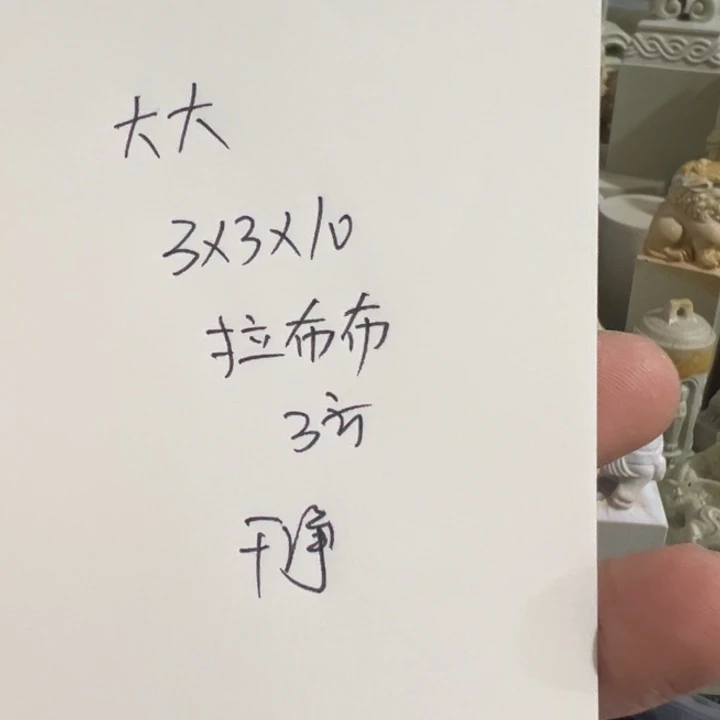 大大
3×3×10
拉布布
3方
干净